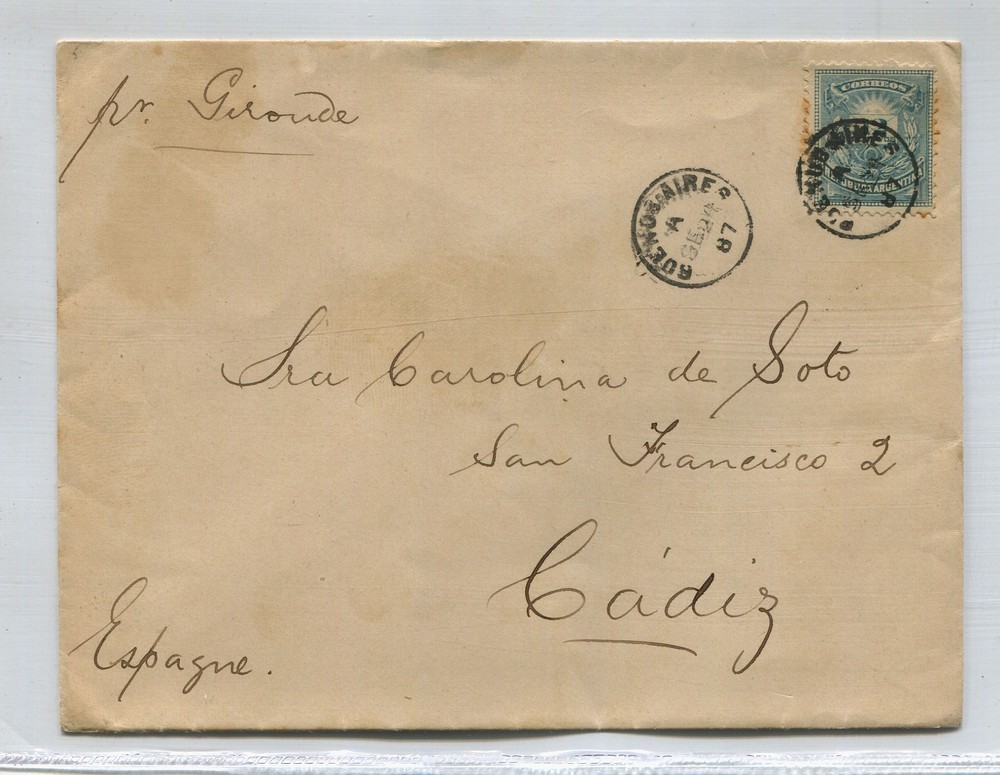 pr. Gironde
CORREOS
REPUBLICA ARGENTINA
BUENOS AIRES
A
87
BUENOS AIRES
Sra Carolina de Soto
San Francisco 2
Cádiz
Espagne.